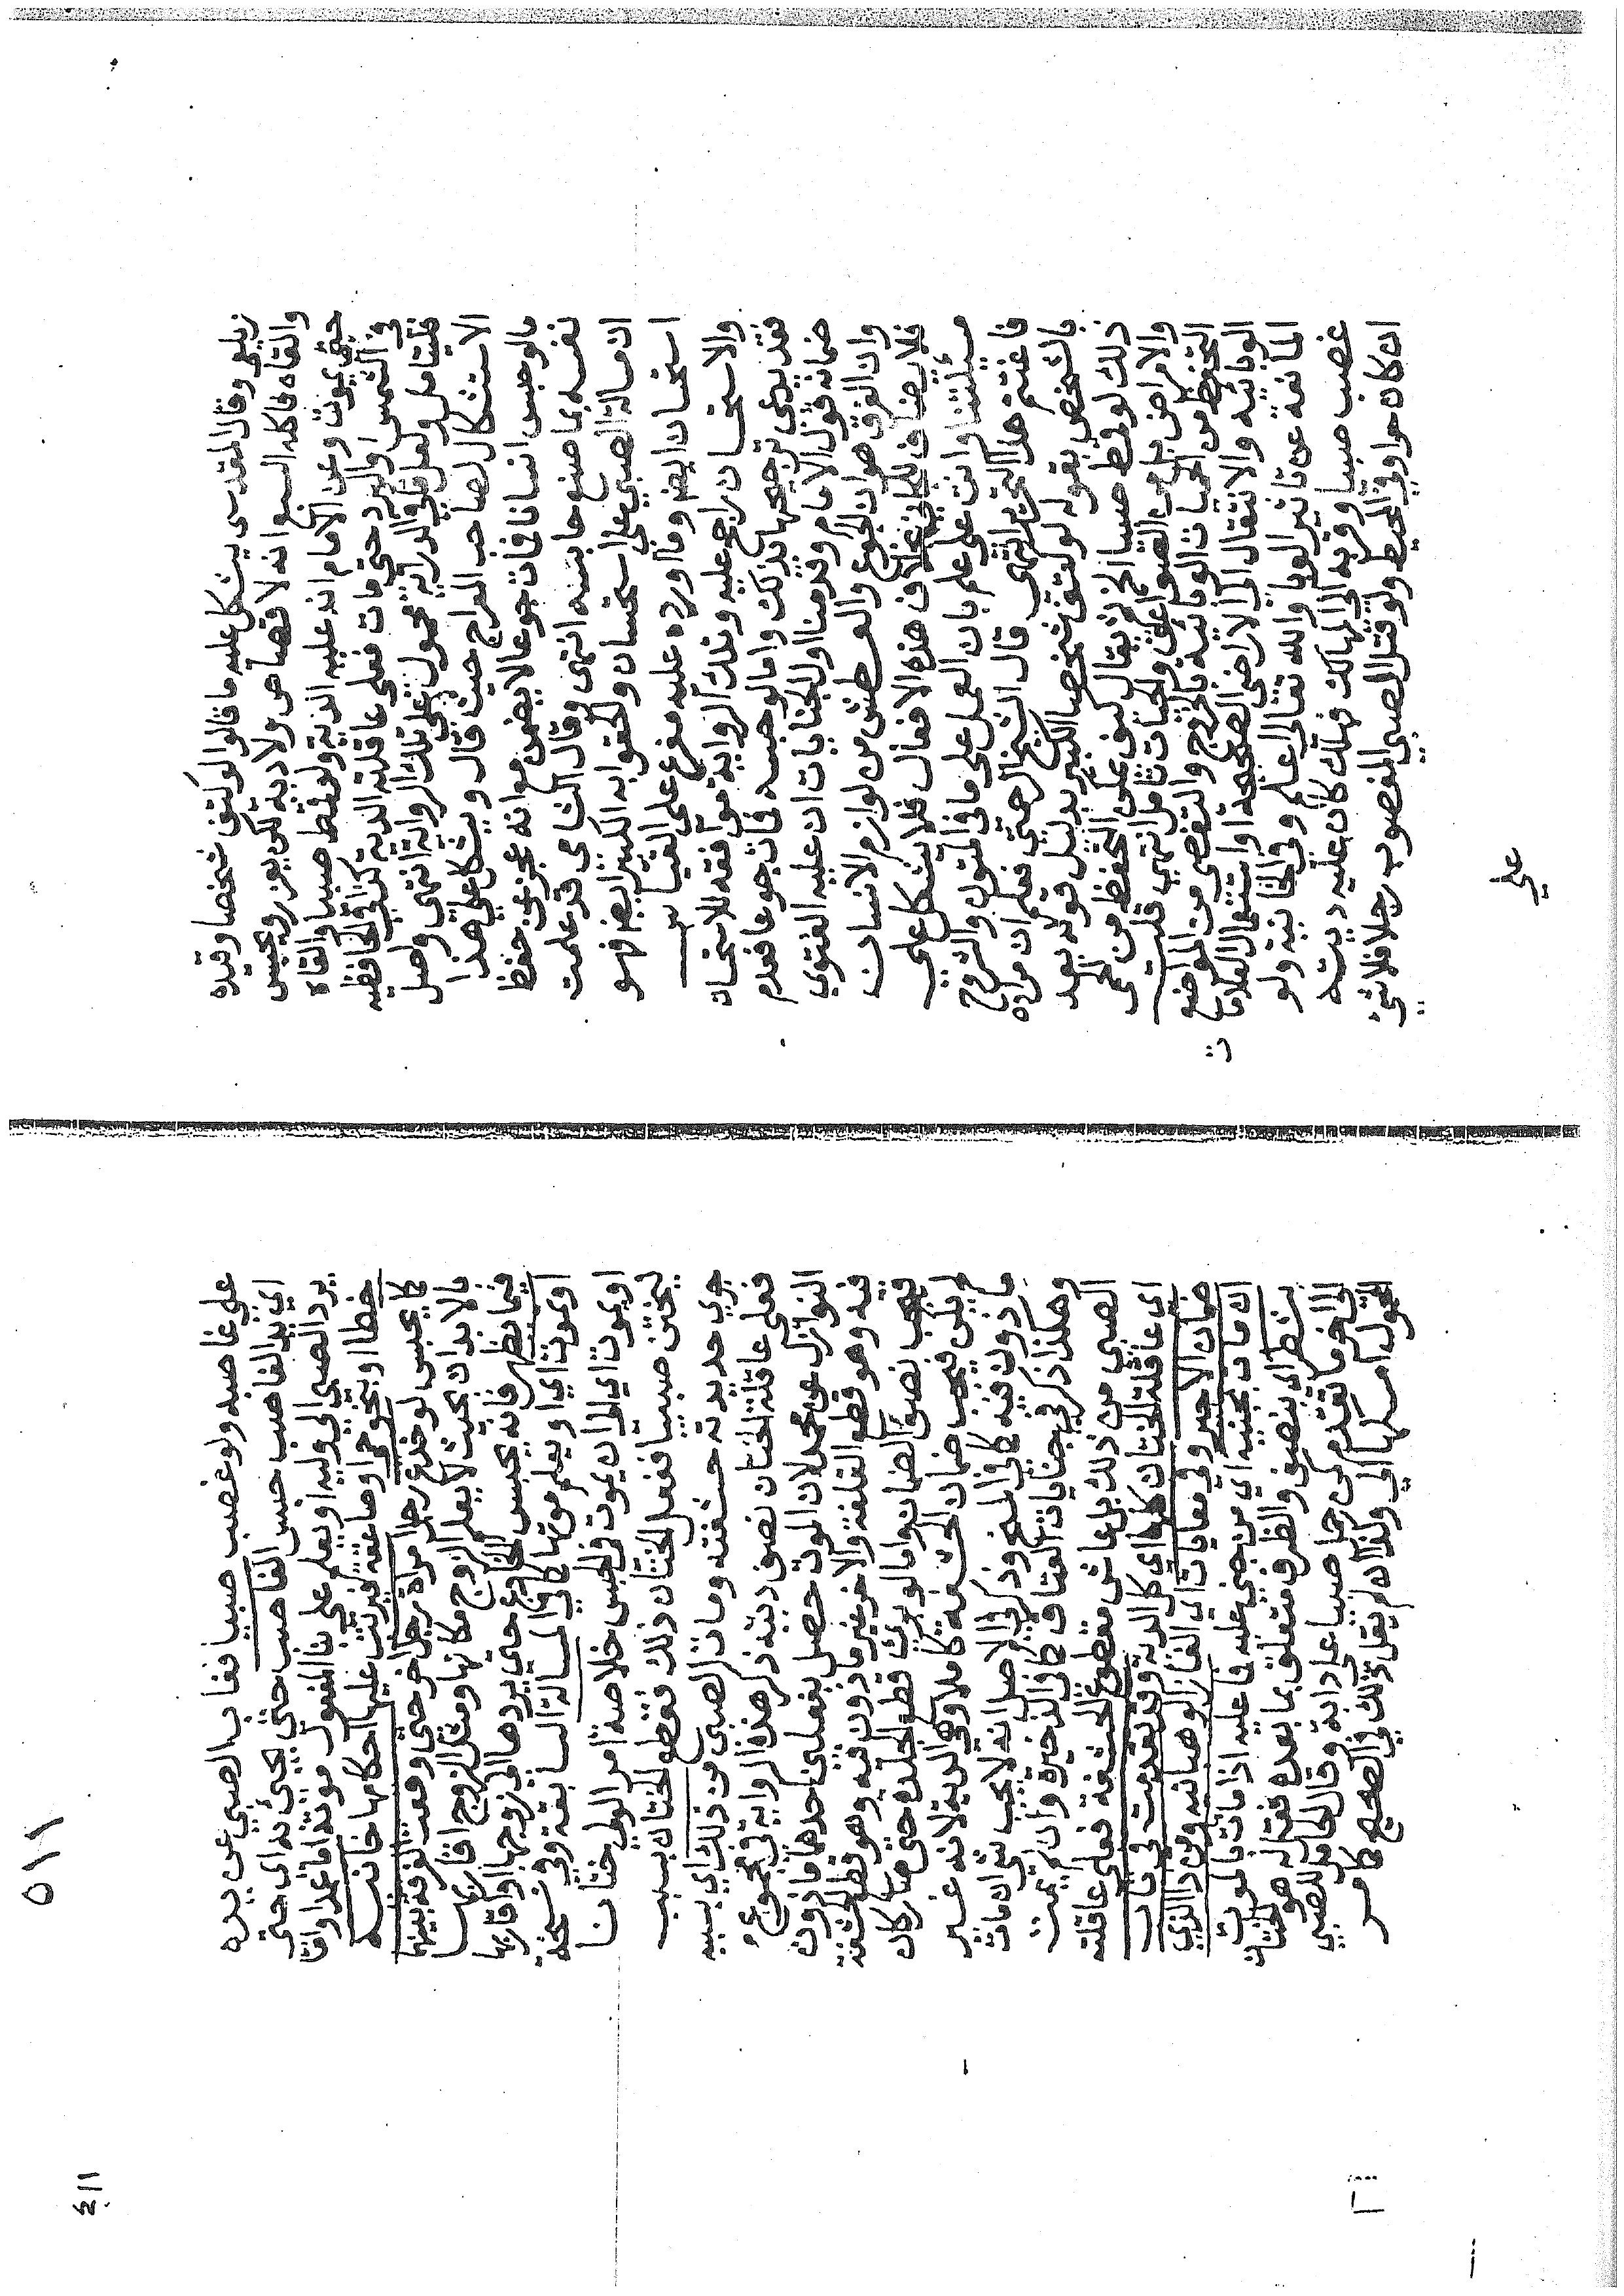 زيلعي وقال المقدسي يشكل عليه ما قالوا لو كتف شخصا وقيده
والقاه فاكله السبع انه لا قصاص ولا دية لكن يعزر ويحبس
حتى يموت وعن الامام انه عليه الدية ولو قمط صبيا والقاه
في الشمس او البرد حتى مات فعلى عاقلته الدية كذا في الحافظية
فليتامل ولعل ما في الدراية محمول على تلك الرواية انتهى واصل
الاستشكال لصاحب المعراج حيث قال ويشكل على هذا
ما لو حبس انسانا فمات جوعا لا يضمن مع انه عجز عن حفظ
نفسه بما صنع حابسه انتهى وقال الشامي قد علمت
ان مسالة الصبي على استحسان والحقوا به الكبير ايضا فهو
استحسان ايضا وما اورده عليه مفرع على القياس
والاستحسان راجح عليه وتلك الرواية موافقة للاستحسان
فقد يدعى ترجيحها بذلك واما لو حبسه فمات جوعا فعدم
ضمانه قول الامام وقدمنا اول الجنايات ان عليه الفتوى
وان الفرق هو ان الجوع والعطش من لوازم الانسان
فلا يضاف للجاني بخلاف هذه الافعال فلا يشكل على
مسيلتنا وانت على علم بان العمل على ما في المتون والشروح
فاغتنم هذا التحرير انتهى قال الشيخ الرحمتي فعلم ان مراده
بالشخص بقوله لو كتف شخصا الكبير بدليل قوله بعد
ذلك لو قمط صبيا الخ لا يقال كيف يمكن التحفظ من الحمى
والامراض بل من الصواعق والحيات تامل انتهى قلت
التحفظ من الحيات الوبائية بالخروج والتفصي من المواضع
الوبائية والانتقال الى الاراضي الصحيحة او استعمال العلاجات
المانعة عن تاثير الوبا والله تعالى اعلم وفي الخانية ولو
غصب صبيا وقربه الى المهالك فهلك كان عليه ديته
ان كان حرا وفي المحيط ولو قتل الصبي المغصوب رجلا فلا شي
على
على غاصبه ولو غصب صبيا فغاب الصبي عن يده
اي يد الغاصب حبس الغاصب حتى يجئ به اي حتى
يرد الصبي الى وليه او يعلم على بنا المفعول موته اما عمدا واما
خطا او بنحو حمى او صاعقة فيترتب عليها احكامها خانية
كما يحبس لو خدع رجل امراة رجل اخر حتى وقعت الفرقة بينهما
بالابدان بحيث لا يعلم الزوج مكانها ومثل الزوج اقاربها
فيما يظهر فانه يحبس الخادع حتى يردها الى زوجها او اقاربها
او يموت اي او يعلم موتها كما في المسالة السابقة وفي نسخة
او يموت اي الى ان يموت في الحبس خلاصة امر الولي ختانا
ليختن صبيا ففعل الختان ذلك فقطع الختان بسبب
جري حديدته حشفته ومات الصبي من ذلك اي بسببه
فعلى عاقلة الختان نصف ديته ذكر هذه الرواية في مجموع
النوازل عن محمد لان الموت حصل بفعلين احدهما ماذون
فيه وهو قطع القلفة والاخر غير ماذون فيه وهو قطع الحشفة
فيجب نصف الضمان واما لو برئ قطع الجلدة حتى صار كان
لم يكن فيجب ضمان الحشفة كاملا وهي الدية لانه غير
ماذون فيه كما في المنح وذكر في الاصل انه لا يجب شي ان مات
وهكذا ذكر في جنايات العتاق كما في الذخيرة وان لم يمت
الصبي من ذلك بل عاش مقطوع الحشفة فعلى عاقلته
اي عاقلة الختان كلها اي كل الدية وقد تقدمت في باب
ضمان الاجير وفي معاياة اي الغاز الوهبانية ومن ذا الذي
ان مات بجنيه اي من جنى عليه فما عليه اذا مات بالموت
ينتظر اي ينصف والظرف متعلق بما بعده فقتله هو الختان
الى اخر ما تقدم كمن حمل صبيا على دابة وقال الحامل للصبي
القول امسكها لي وكذا ان لم يقل ذلك في الصحيح كما مر
٥١١